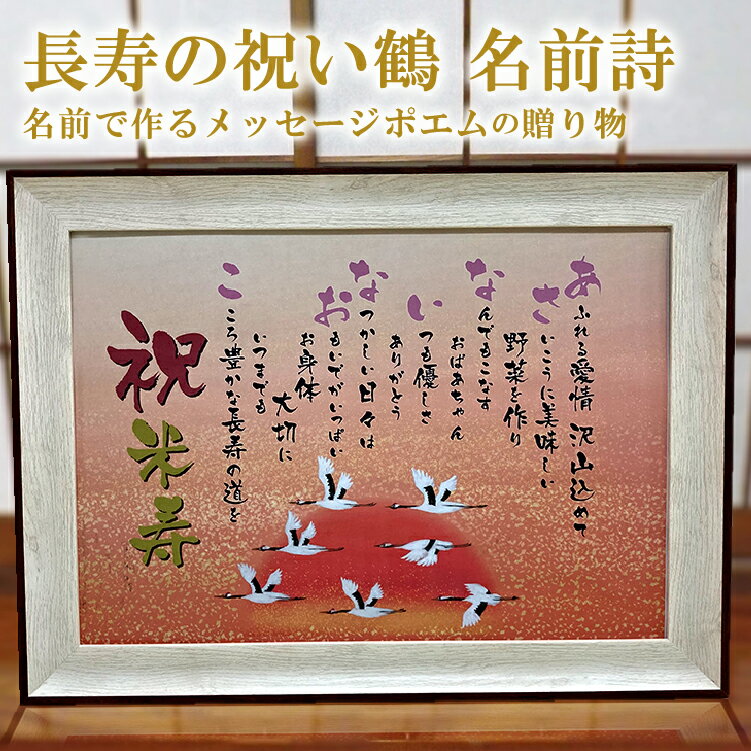 長寿の祝い鶴 名前詩
名前で作るメッセージポエムの贈り物
あふれる愛情 沢山込めて
さいこうに美味しい
野菜を作り
なんでもこなす
おばあちゃん
いつも優しさ
ありがとう
なつかしい日々は
おもいでがいっぱい
お身体 大切に
いつまでも
こころ豊かな長寿の道を
祝
米寿